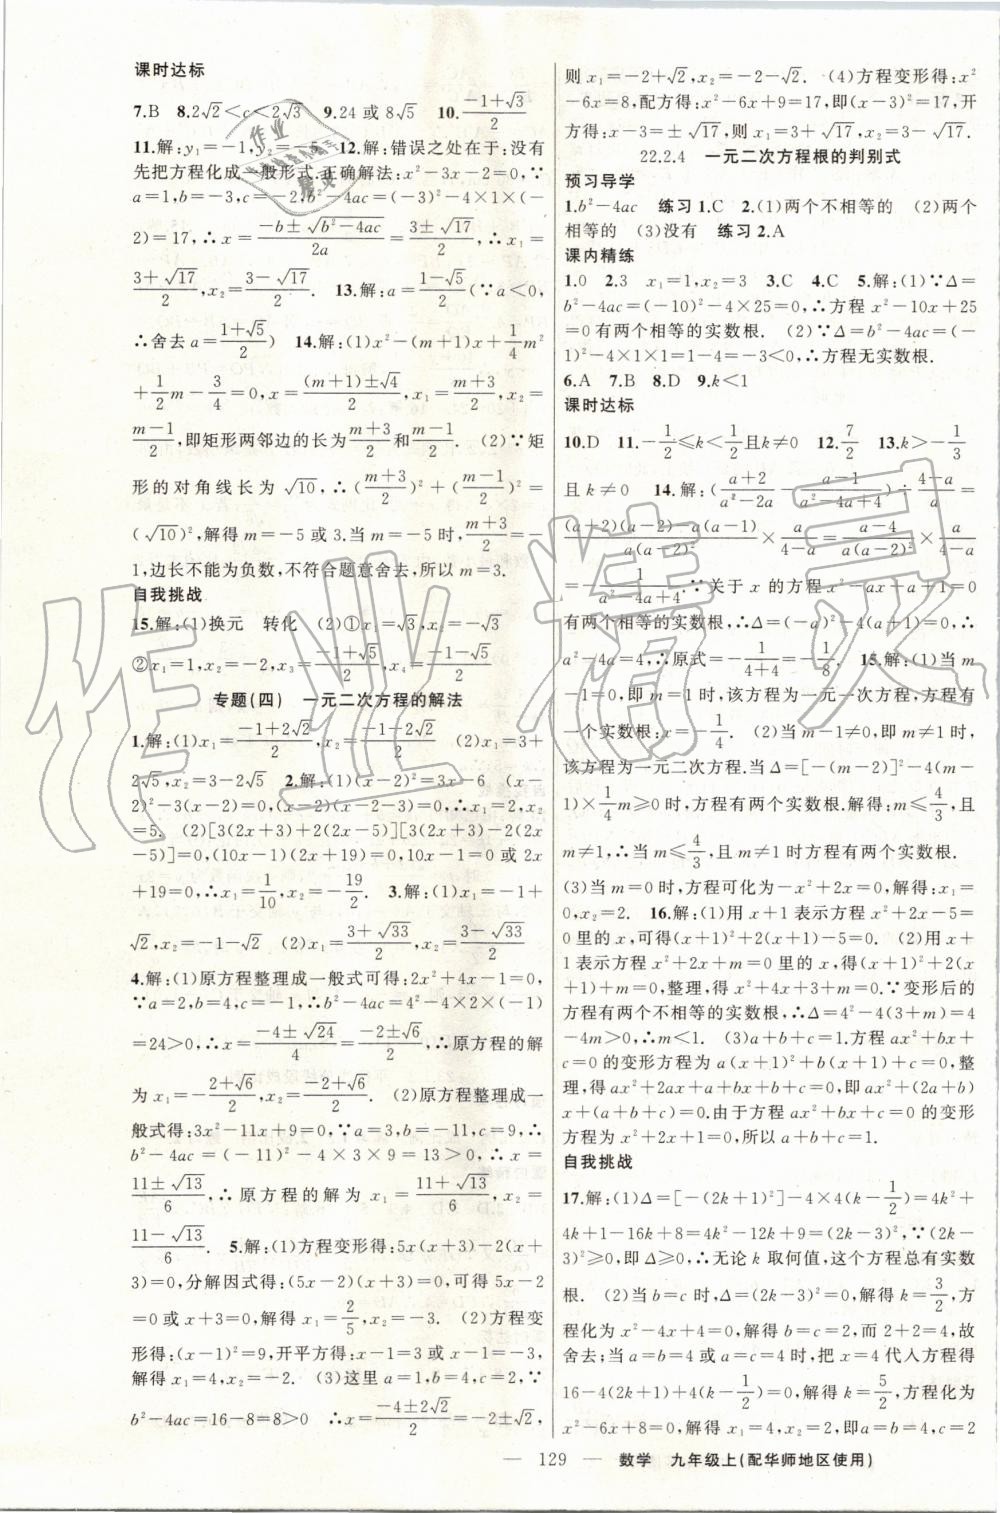 课时达标
7.B 8.2√2<c<2√3 9.24 或 8√5 10.(-1+√3)/2
11.解:y₁=-1,y₂=-5 12.解:错误之处在于:没有
先把方程化成一般形式.正确解法:x²-3x-2=0,∵
a=1,b=-3,c=-2,b²-4ac=(-3)²-4×1×(-
2)=17,∴x=(-b±√(b²-4ac))/2a=(3±√17)/2,∴x₁=
(3+√17)/2,x₂=(3-√17)/2. 13.解:a=(1-√5)/2(∵a<0,
∴舍去a=(1+√5)/2) 14.解:(1)x²-(m+1)x+1/4m²
+1/2m-3/4=0,x=((m+1)±√4)/2,x=(m+3)/2或x=
(m-1)/2,即矩形两邻边的长为(m+3)/2和(m-1)/2. (2)∵矩
形的对角线长为√10,∴((m+3)/2)²+((m-1)/2)²=
(√10)²,解得m=-5或3.当m=-5时,(m+3)/2=-
1,边长不能为负数,不符合题意舍去,所以m=3.
自我挑战
15.解:(1)换元 转化 (2)①x₁=√3,x₂=-√3
②x₁=1,x₂=-2,x₃=(-1+√5)/2,x₄=(-1-√5)/2
专题(四) 一元二次方程的解法
1.解:(1)x₁=(-1+2√2)/2,x₂=(-1-2√2)/2 (2)x₁=3+
2√5,x₂=3-2√5 2.解:(1)(x-2)²=3x-6 (x-
2)²-3(x-2)=0,(x-2)(x-5)=0,∴x₁=2,x₂
=5. (2)[3(2x+3)+2(2x-5)][3(2x+3)-2(2x
-5)]=0,(10x-1)(2x+19)=0,10x-1=0或2x
+19=0,∴x₁=1/10,x₂=-19/2. 3.解:(1)x₁=-1+
√2,x₂=-1-√2 (2)x₁=(3+√33)/2,x₂=(3-√33)/2
4.解:(1)原方程整理成一般式可得:2x²+4x-1=0,
∵a=2,b=4,c=-1,∴b²-4ac=4²-4×2×(-1)
=24>0,∴x=(-4±√24)/4=(-2±√6)/2,∴原方程的解
为x₁=(-2+√6)/2,x₂=(-2-√6)/2. (2)原方程整理成一
般式得:3x²-11x+9=0,∵a=3,b=-11,c=9,∴
b²-4ac=(-11)²-4×3×9=13>0,∴x=
(11±√13)/6,∴原方程的解为x₁=(11+√13)/6,x₂=
(11-√13)/6. 5.解:(1)方程变形得:5x(x+3)-2(x+
3)=0,分解因式得:(5x-2)(x+3)=0,可得5x-2
=0或x+3=0,解得x₁=2/5,x₂=-3. (2)方程变
形得:(x-1)²=9,开平方得:x-1=3或x-1=-3,
解得x₁=4,x₂=-2. (3)这里a=1,b=4,c=2,∵
b²-4ac=16-8=8>0 ∴x=(-4±2√2)/2=-2±√2,
则x₁=-2+√2,x₂=-2-√2. (4)方程变形得:x²
-6x=8,配方得:x²-6x+9=17,即(x-3)²=17,开
方得:x-3=±√17,则x₁=3+√17,x₂=3-√17.
22.2.4 一元二次方程根的判别式
预习导学
1.b²-4ac 练习1.C 2.(1)两个不相等的 (2)两个
相等的 (3)没有 练习2.A
课内精练
1.0 2.3 x₁=1,x₂=3 3.C 4.C 5.解:(1)∵Δ=
b²-4ac=(-10)²-4×25=0,∴方程x²-10x+25
=0有两个相等的实数根. (2)∵Δ=b²-4ac=(-
1)²-4×1×1=1-4=-3<0,∴方程无实数根.
6.A 7.B 8.D 9.k<1
课时达标
10.D 11.-1/2≤k<1/2且k≠0 12.7/2 13.k>-1/3
且k≠0 14.解:((a+2)/(a²-2a)-(a-1)/(a²-4a+4))÷(4-a)/a
=((a+2)(a-2)-a(a-1))/(a(a-2)²)×a/(4-a)=(a-4)/(a(a-2)²)×a/(4-a)
=-1/(a²-4a+4).∵关于x的方程x²-ax+a+1=0
有两个相等的实数根,∴Δ=(-a)²-4(a+1)=0,∴
a²-4a=4,∴原式=-1/(4+4)=-1/8. 15.解:(1)当m
-1=0,即m=1时,该方程为一元一次方程,方程有
一个实数根:x=-1/4. (2)当m-1≠0,即m≠1时,
该方程为一元二次方程.当Δ=[-(m-2)]²-4(m-
1)×1/4m≥0时,方程有两个实数根.解得:m≤4/3,且
m≠1,∴当m≤4/3,且m≠1时方程有两个实数根.
(3)当m=0时,方程可化为-x²+2x=0,解得:x₁=
0,x₂=2. 16.解:(1)用x+1表示方程x²+2x-5=
0里的x,可得(x+1)²+2(x+1)-5=0. (2)用x+
1表示方程x²+2x+m=0里的x,得(x+1)²+2(x
+1)+m=0,整理,得x²+4x+3+m=0.∵变形后的
方程有两个不相等的实数根,∴Δ=4²-4(3+m)=4
-4m>0,∴m<1. (3)a+b+1=0.方程ax²+bx+
c=0的变形方程为a(x+1)²+b(x+1)+c=0,整
理,得ax²+2ax+a+bx+b+c=0,即ax²+(2a+b)
x+(a+b+c)=0.由于方程ax²+bx+c=0的变形
方程为x²+2x+1=0,所以a+b=1.
自我挑战
17.解:(1)Δ=[-(2k+1)²]-4×4(k-1/2)=4k²+
4k+1-16k+8=4k²-12k+9=(2k-3)²,∵(2k-
3)²≥0,即Δ≥0,∴无论k取何值,这个方程总有实数
根. (2)当b=c时,Δ=(2k-3)²=0,解得k=3/2,方
程化为x²-4x+4=0,解得b=c=2,而2+2=4,故
舍去;当a=b=4或a=c=4时,把x=4代入方程得
16-4(2k+1)+4(k-1/2)=0,解得k=5/2,方程化为
x²-6x+8=0,解得x₁=4,x₂=2,即a=b=4,c=2
— 129 — 数学 九年级上(配华师地区使用)